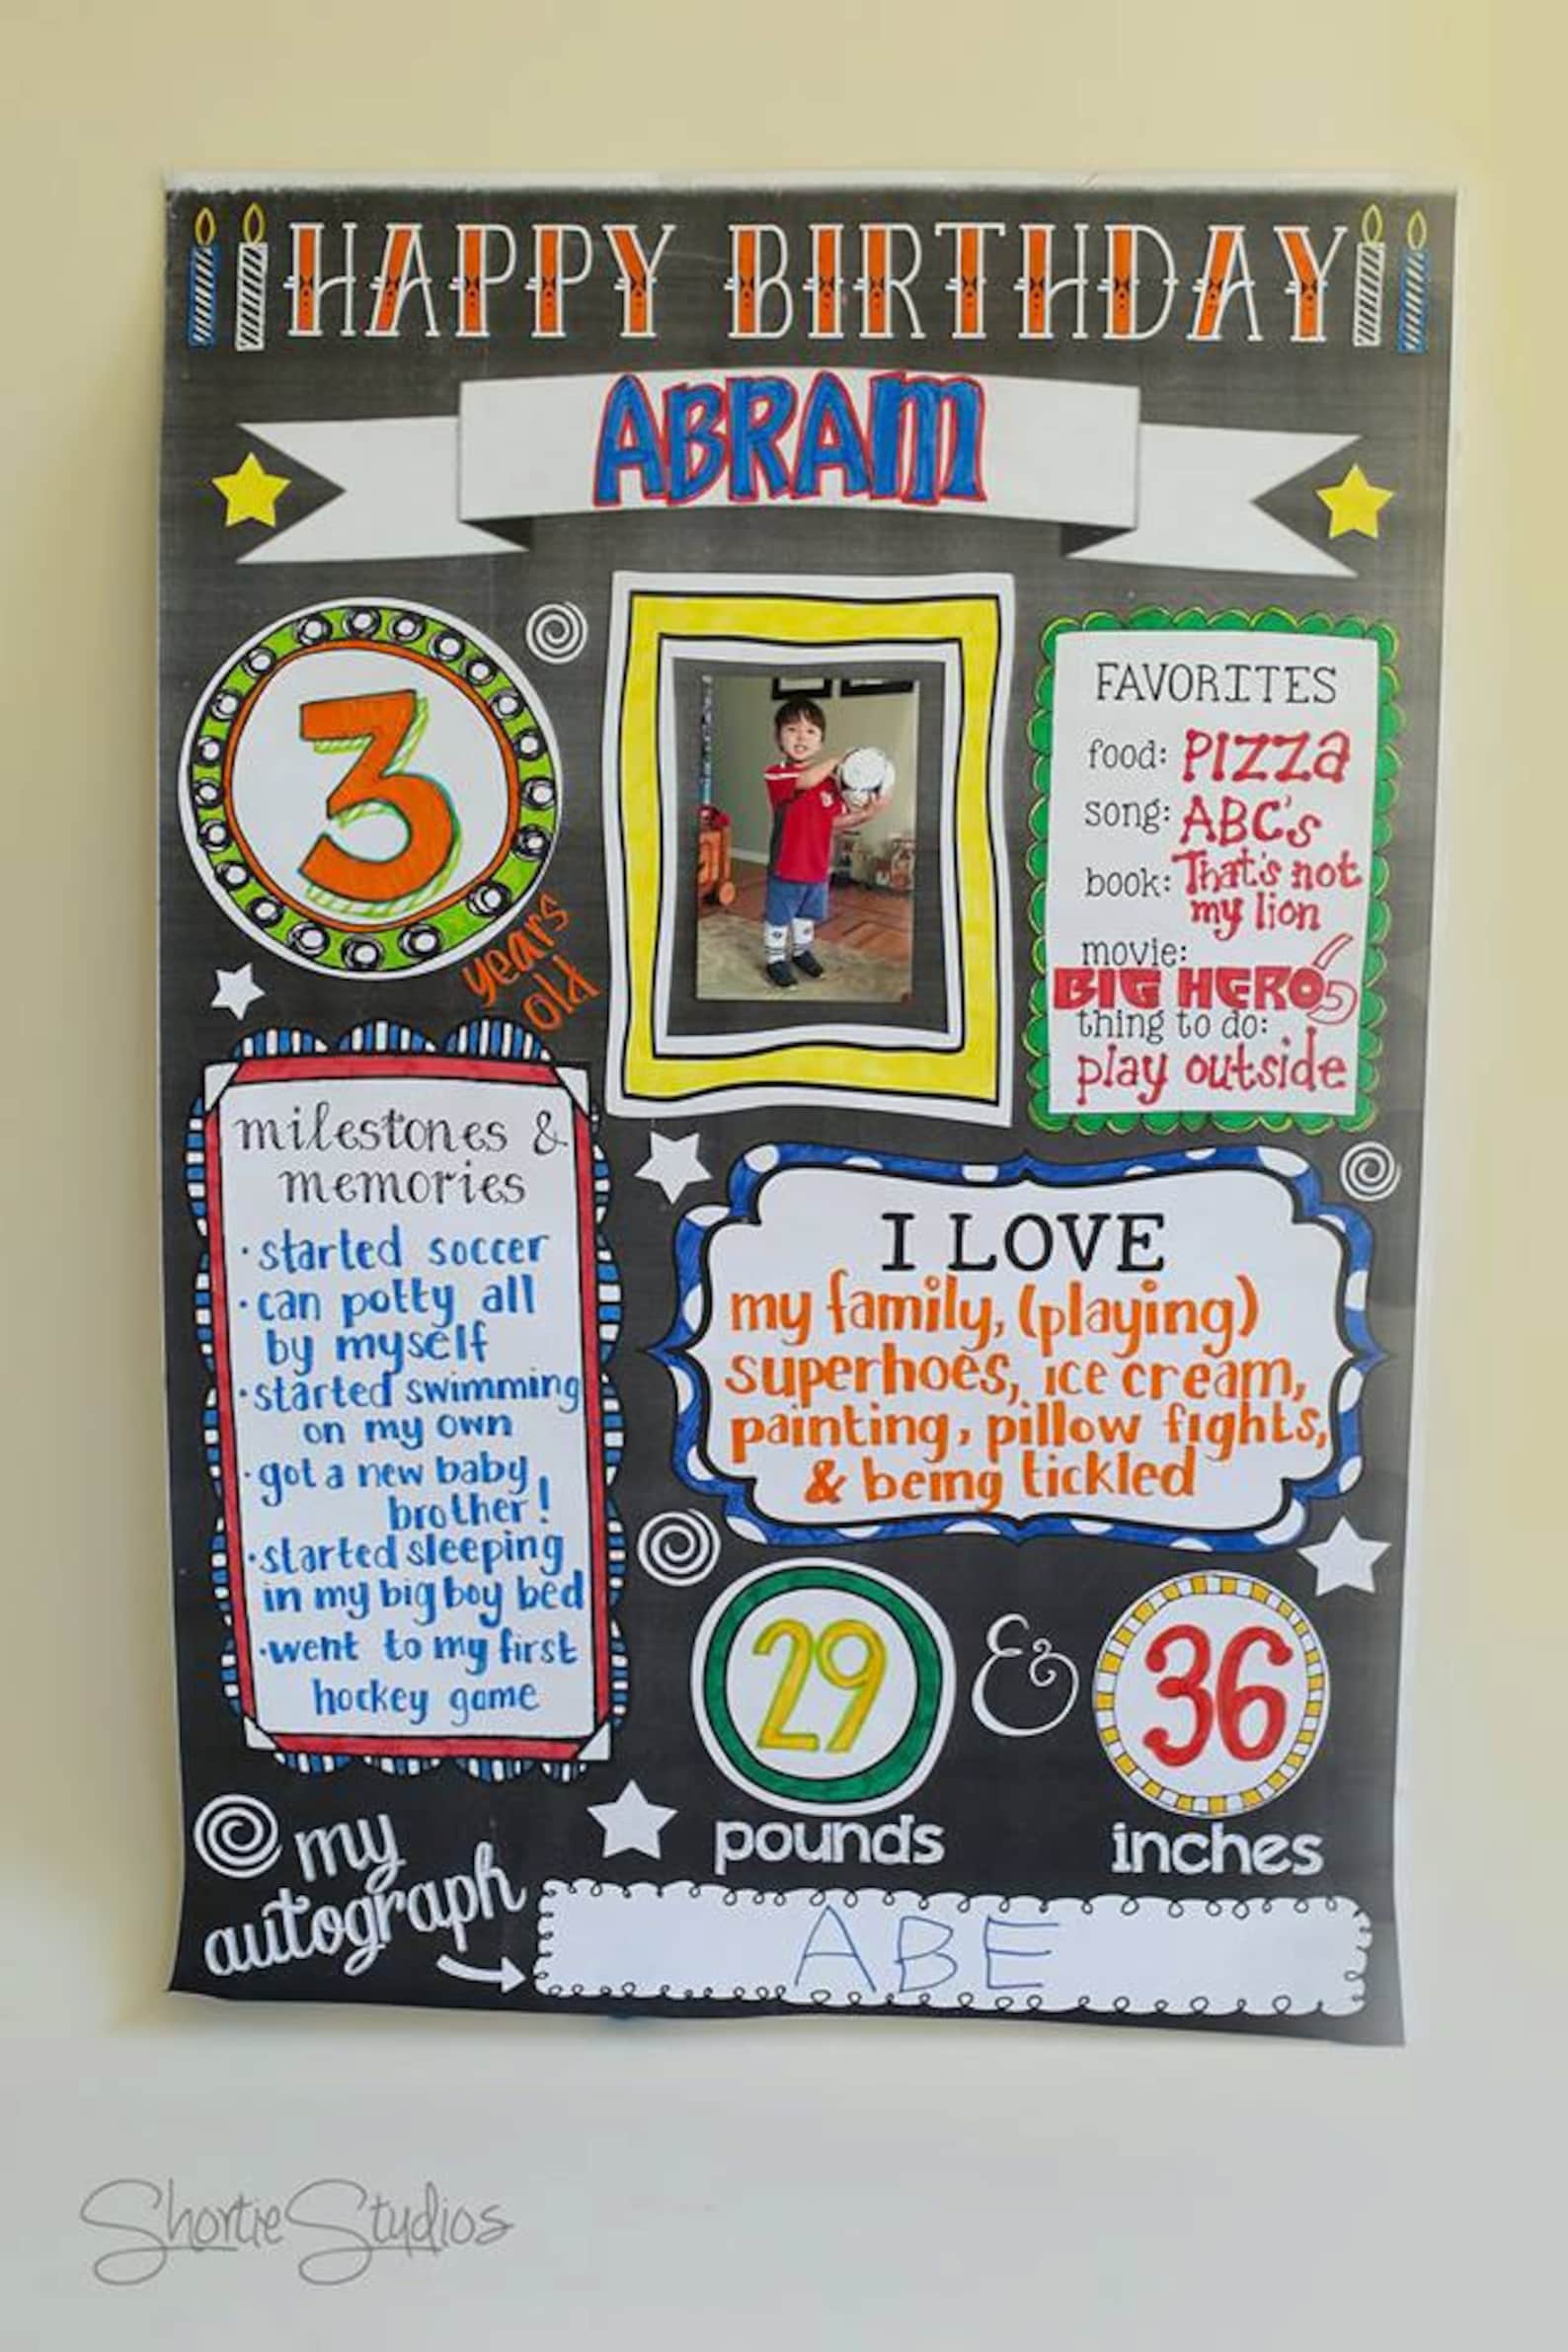 HAPPY BIRTHDAY
ABRAM
3
years
old
FAVORITES
food: PIZZA
song: ABC's
book: That's not
my lion
movie:
BIG HERO 6
thing to do:
play outside
milestones &
memories
· started soccer
· can potty all
by myself
· started swimming
on my own
· got a new baby
brother!
· started sleeping
in my big boy bed
· went to my first
hockey game
I LOVE
my family, (playing)
superhoes, ice cream,
painting, pillow fights,
& being tickled
29 & 36
pounds inches
my
autograph
ABE
Shortie Studios